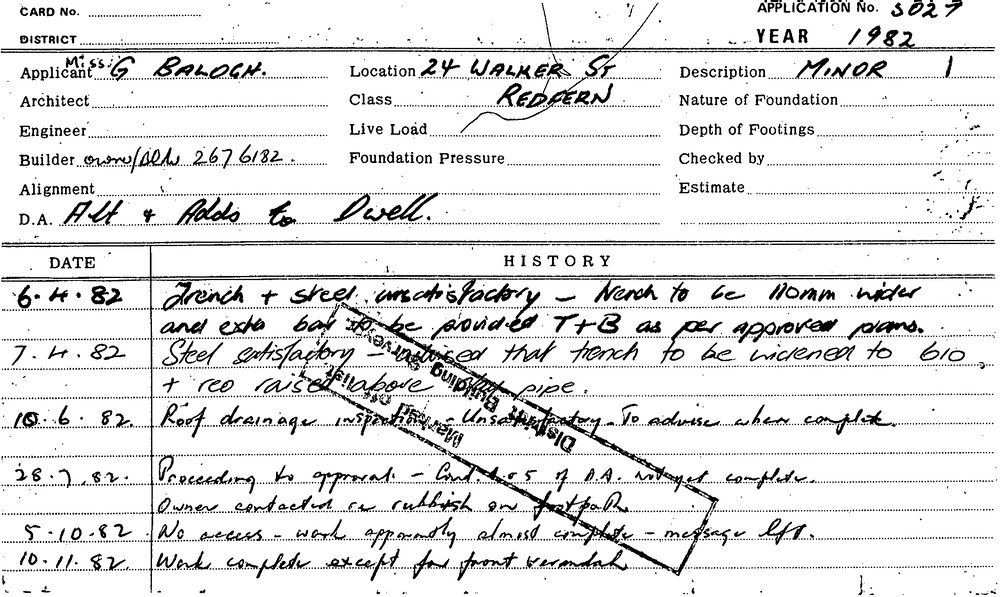 CARD No.
APPLICATION No. 5027
DISTRICT
YEAR 1982
Applicant Miss. G BALOGH. Location 24 WALKER ST Description MINOR 1
Architect Class REDFERN Nature of Foundation
Engineer Live Load Depth of Footings
Builder owner/ 267 6182. Foundation Pressure Checked by
Alignment Estimate
D.A. Alt & Adds to Dwell.
DATE HISTORY
6.4.82 Trench + steel unsatisfactory – trench to be 110mm wider
and extra bar to be provided T+B as per approved plans.
7.4.82 Steel satisfactory – advised that trench to be widened to 610
+ reo raised above pipe.
10.6.82. Roof drainage inspection – Unsatisfactory. To advise when complete.
28.7.82. Proceeding to approval – 5 of D.A. not yet complete.
Owner contacted re rubbish on footpath
5.10.82 No access – work apparently almost complete – message left.
10.11.82. Work complete except for front verandah
Marked off List
District Building Surveyor